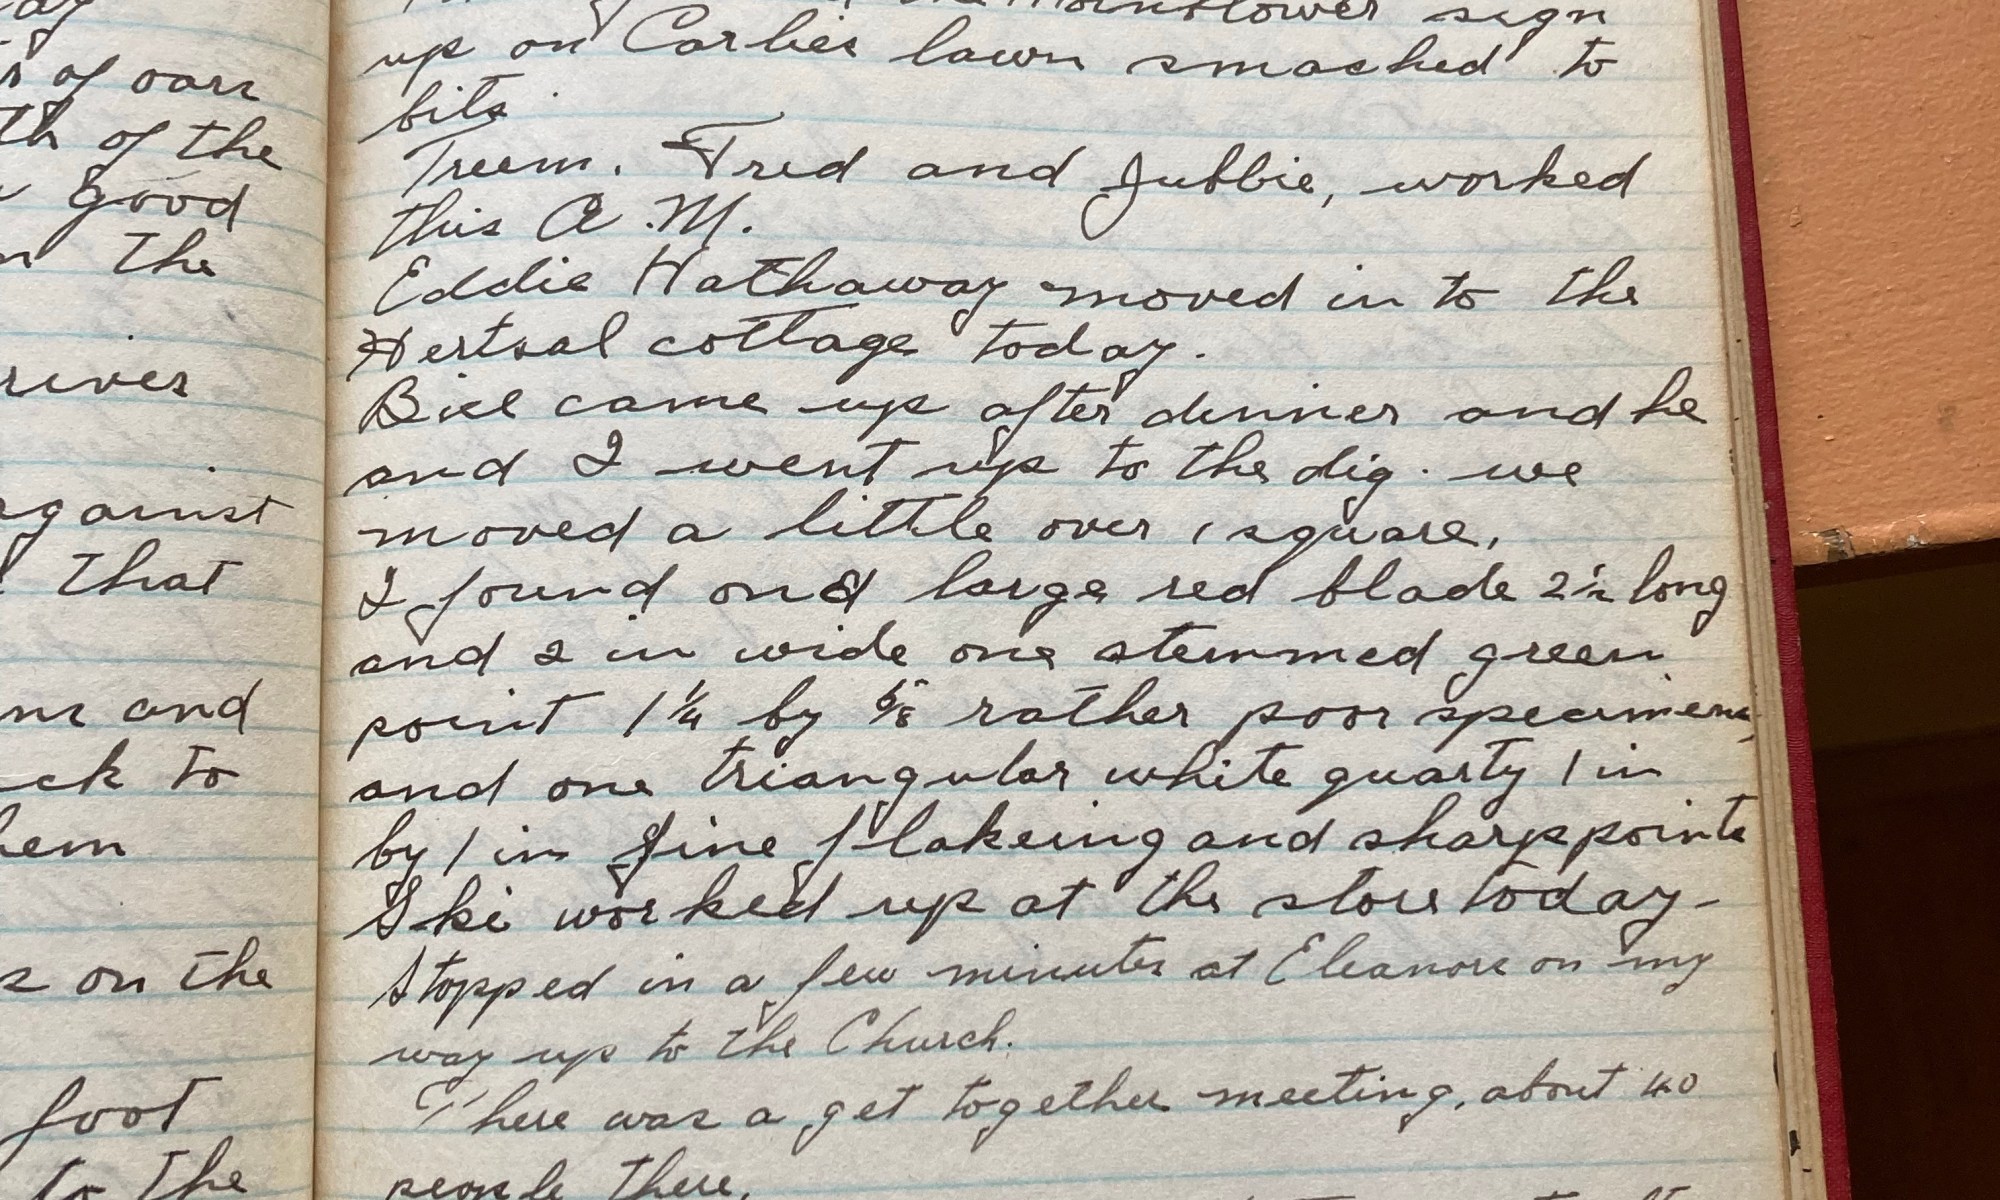 ay
r of oars
th of the
good
the
river
against
that
and
ck to
hem
s on the
foot
to the
the sign
up on Carlies lawn smashed to
bits.
Treem. Fred and Jubbie, worked
this A.M.
Eddie Hathaway moved in to the
Hertsal cottage today.
Bill came up after dinner and he
and I went up to the dig. we
moved a little over 1 square,
I found one large red blade 2½ long
and 2 in wide one stemmed green
point 1¼ by ⅝ rather poor specimens,
and one triangular white quartz 1 in
by 1 in fine flakeing and sharp points
Ski worked up at the store today-
Stopped in a few minutes at Eleanors on my
way up to the Church.
There was a get together meeting, about 40
people there.